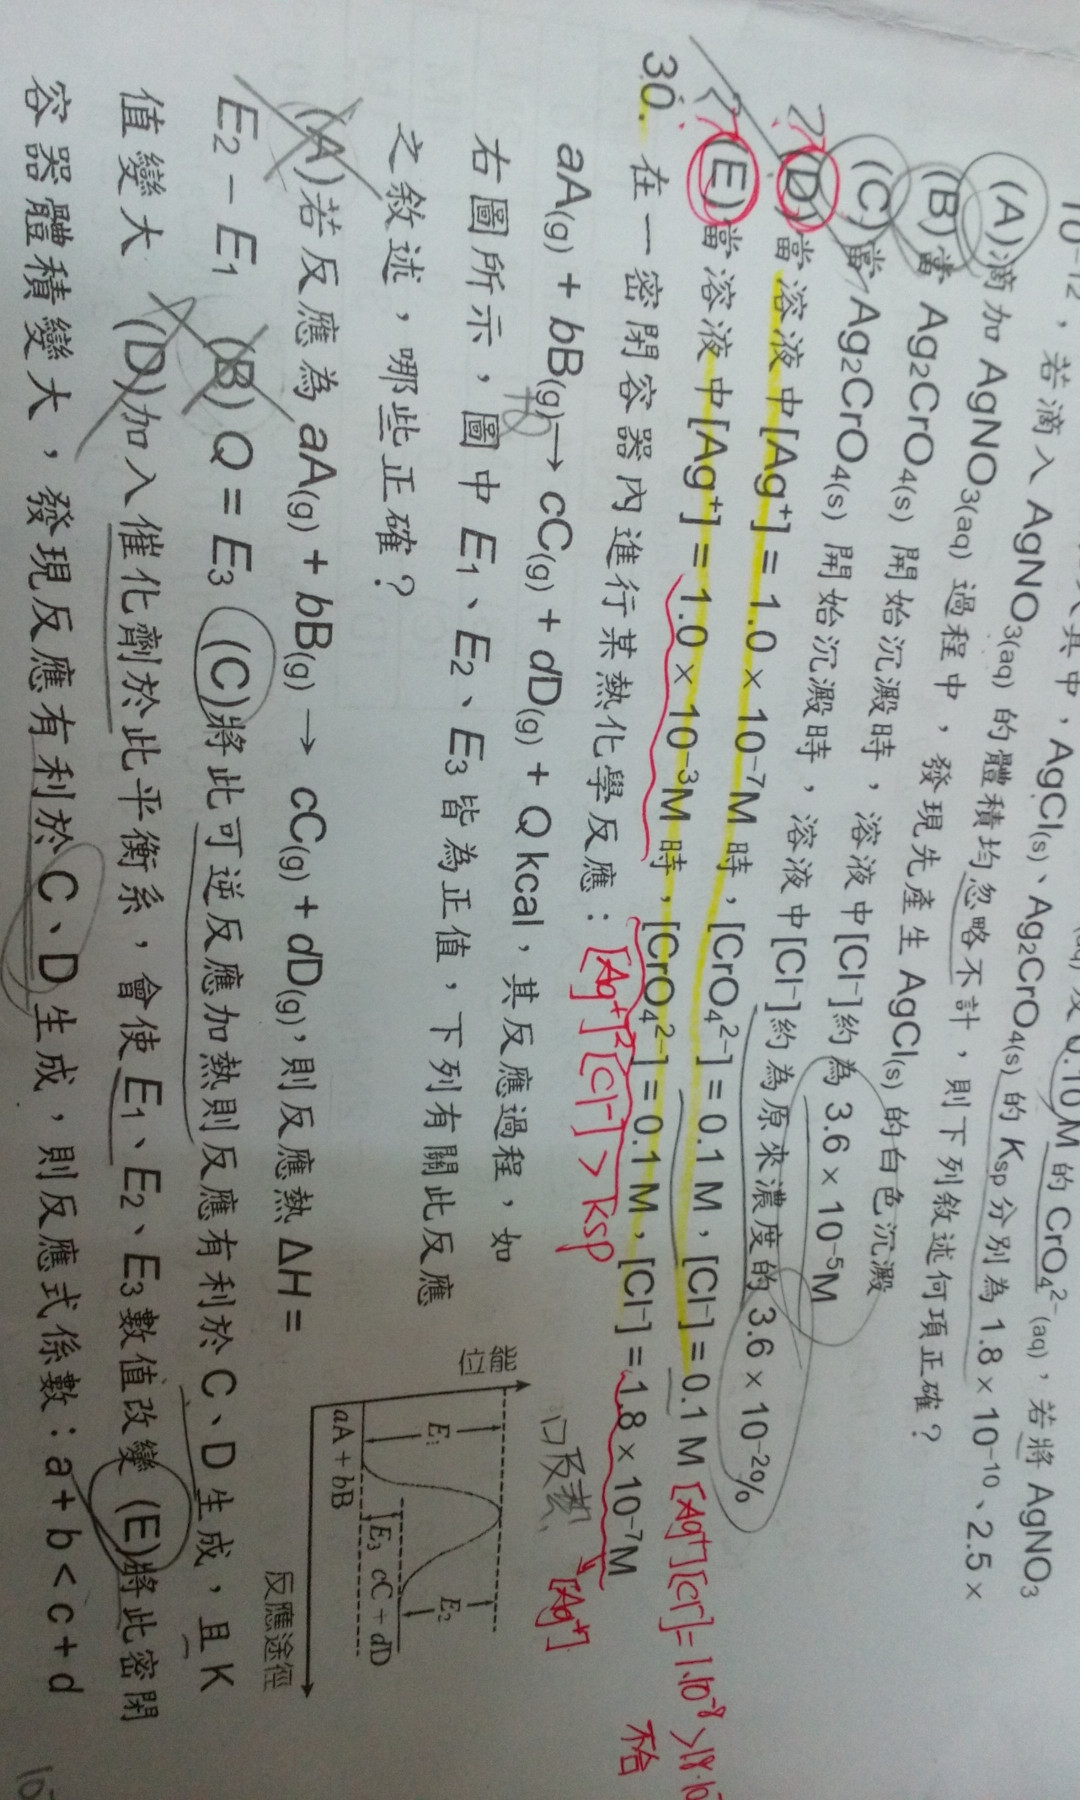 10⁻¹²，若滴入 AgNO₃(aq) 的體積均忽略不計，則下列敘述何項正確？
其中，AgCl(s)、Ag₂CrO₄(s) 的 Ksp 分別為 1.8 × 10⁻¹⁰、2.5 ×
0.10 M 的 CrO₄²⁻(aq)，若將 AgNO₃
(A)滴加 AgNO₃(aq) 過程中，發現先產生 AgCl(s) 的白色沉澱
(B)當 Ag₂CrO₄(s) 開始沉澱時，溶液中[Cl⁻]約為 3.6 × 10⁻⁵M
(C)當 Ag₂CrO₄(s) 開始沉澱時，溶液中[Cl⁻]約為原來濃度的 3.6 × 10⁻²%
(D)當溶液中[Ag⁺] = 1.0 × 10⁻⁷M 時，[CrO₄²⁻] = 0.1 M，[Cl⁻] = 0.1 M
[Ag⁺][Cl⁻] = 1·10⁻⁸ > 1.8·10
不合
(E)當溶液中[Ag⁺] = 1.0 × 10⁻³M 時，[CrO₄²⁻] = 0.1 M，[Cl⁻] = 1.8 × 10⁻⁷M
[Ag⁺]
[Ag⁺]²[Cl⁻] > Ksp
30. 在一密閉容器內進行某熱化學反應：
aA(g) + bB(g) → cC(g) + dD(g) + Q kcal，其反應過程，如
右圖所示，圖中 E₁、E₂、E₃ 皆為正值，下列有關此反應
之敘述，哪些正確？
(A)若反應為 aA(g) + bB(g) → cC(g) + dD(g)，則反應熱 ΔH =
E₂ − E₁ (B) Q = E₃ (C)將此可逆反應加熱則反應有利於 C、D 生成，且 K
值變大 (D)加入催化劑於此平衡系，會使 E₁、E₂、E₃ 數值改變 (E)將此密閉
容器體積變大，發現反應有利於 C、D 生成，則反應式係數：a + b < c + d
位能
E₁
E₂
E₃
aA + bB
cC + dD
反應途徑